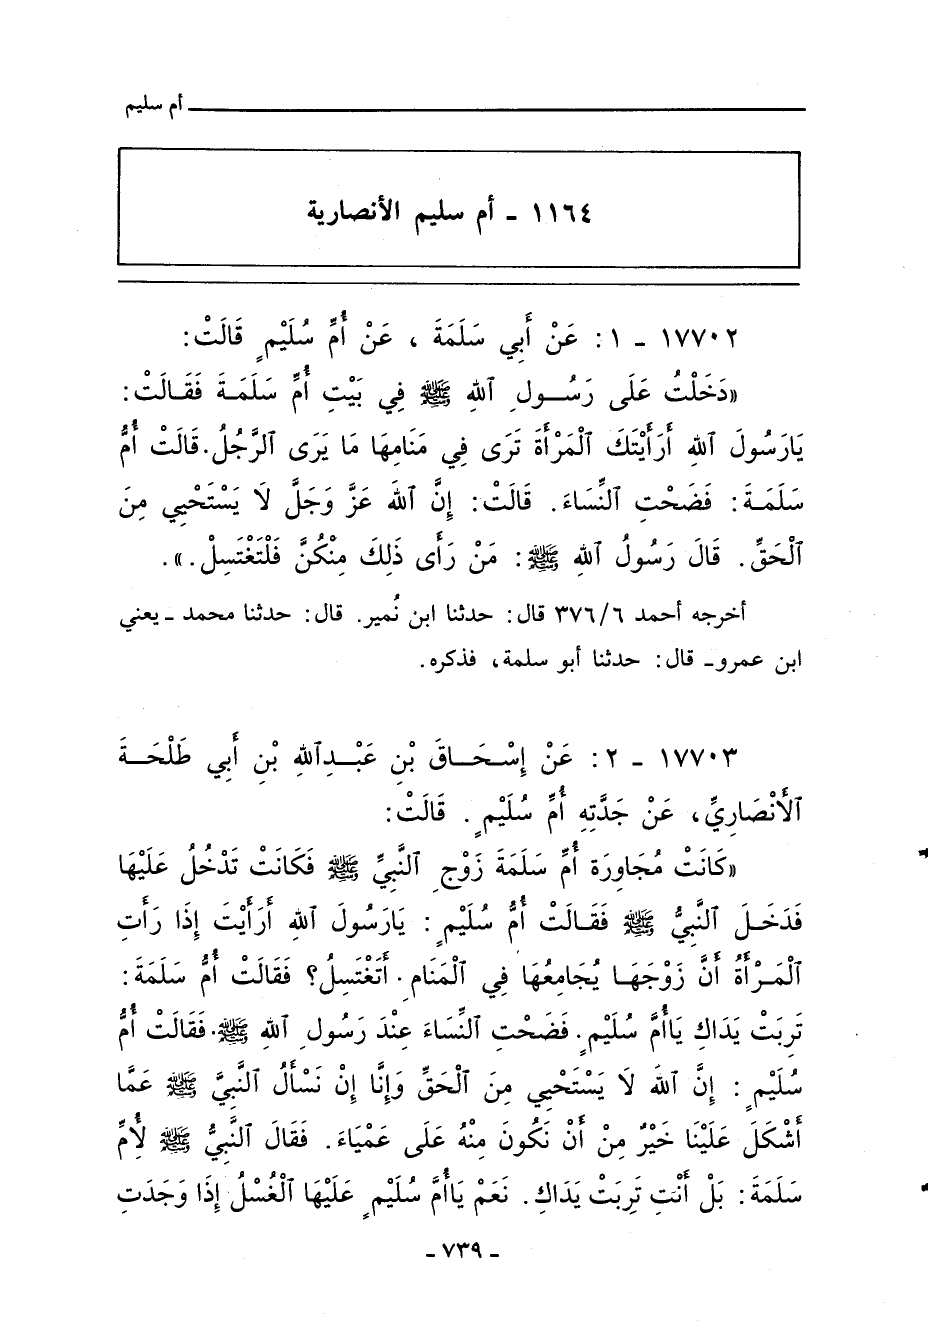 أم سليم
١١٦٤ - أم سليم الأنصارية
١٧٧٠٢ - ١: عَنْ أَبِي سَلَمَةَ ، عَنْ أُمِّ سُلَيْمٍ قَالَتْ:
«دَخَلْتُ عَلَى رَسُولِ ٱللهِ ﷺ فِي بَيْتِ أُمِّ سَلَمَةَ فَقَالَتْ:
يَارَسُولَ ٱللهِ أَرَأَيْتَكَ ٱلْمَرْأَةَ تَرَى فِي مَنَامِهَا مَا يَرَى ٱلرَّجُلُ. قَالَتْ أُمُّ
سَلَمَةَ: فَضَحْتِ ٱلنِّسَاءَ. قَالَتْ: إِنَّ ٱللهَ عَزَّ وَجَلَّ لَا يَسْتَحْيِي مِنَ
ٱلْحَقِّ. قَالَ رَسُولُ ٱللهِ ﷺ: مَنْ رَأَى ذَلِكَ مِنْكُنَّ فَلْتَغْتَسِلْ.».
أخرجه أحمد ٣٧٦/٦ قال: حدثنا ابن نُمير. قال: حدثنا محمد ـ يعني
ابن عمرو ـ قال: حدثنا أبو سلمة، فذكره.
١٧٧٠٣ - ٢: عَنْ إِسْحَاقَ بْنِ عَبْدِٱللهِ بْنِ أَبِي طَلْحَةَ
ٱلأَنْصَارِيِّ، عَنْ جَدَّتِهِ أُمِّ سُلَيْمٍ. قَالَتْ:
«كَانَتْ مُجَاوِرَة أُمِّ سَلَمَةَ زَوْجِ ٱلنَّبِيِّ ﷺ فَكَانَتْ تَدْخُلُ عَلَيْهَا
فَدَخَلَ ٱلنَّبِيُّ ﷺ فَقَالَتْ أُمُّ سُلَيْمٍ: يَارَسُولَ ٱللهِ أَرَأَيْتَ إِذَا رَأَتِ
ٱلْمَرْأَةُ أَنَّ زَوْجَهَا يُجَامِعُهَا فِي ٱلْمَنَامِ. أَتَغْتَسِلُ؟ فَقَالَتْ أُمُّ سَلَمَةَ:
تَرِبَتْ يَدَاكِ يَاأُمَّ سُلَيْمٍ. فَضَحْتِ ٱلنِّسَاءَ عِنْدَ رَسُولِ ٱللهِ ﷺ. فَقَالَتْ أُمُّ
سُلَيْمٍ: إِنَّ ٱللهَ لَا يَسْتَحْيِي مِنَ ٱلْحَقِّ وَإِنَّا إِنْ نَسْأَلُ ٱلنَّبِيَّ ﷺ عَمَّا
أَشْكَلَ عَلَيْنَا خَيْرٌ مِنْ أَنْ نَكُونَ مِنْهُ عَلَى عَمْيَاءَ. فَقَالَ ٱلنَّبِيُّ ﷺ لأُمِّ
سَلَمَةَ: بَلْ أَنْتِ تَرِبَتْ يَدَاكِ. نَعَمْ يَاأُمَّ سُلَيْمٍ عَلَيْهَا ٱلْغُسْلُ إِذَا وَجَدَتِ
- ٧٣٩ -